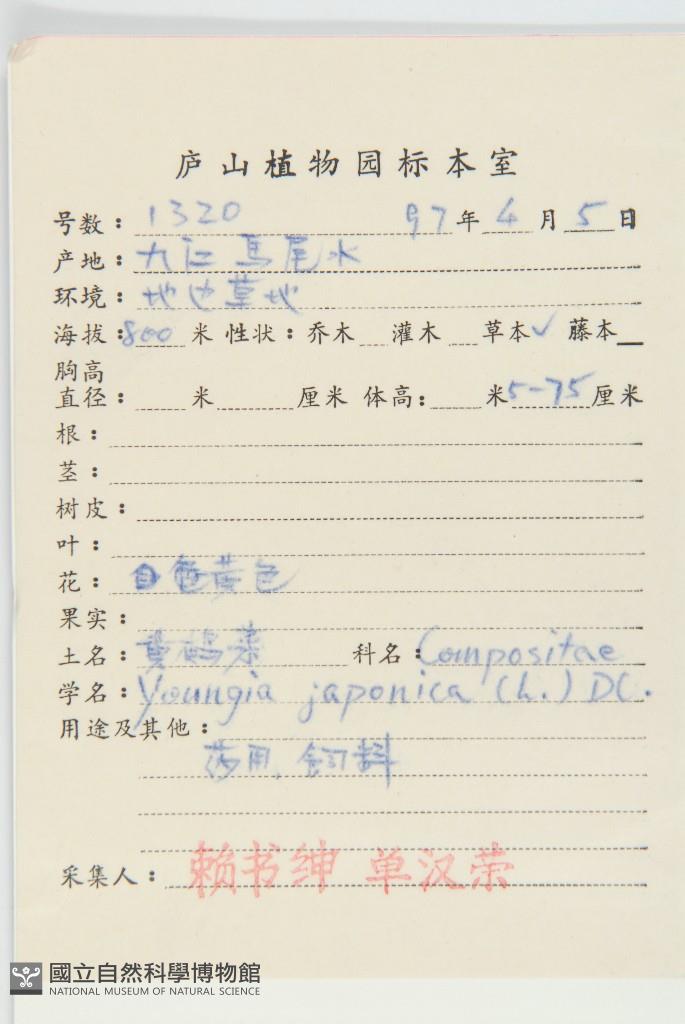 庐山植物园标本室
号数：1320 97年4月5日
产地：九江 馬尾水
环境：地边草地
海拔：800米 性状：乔木 灌木 草本✓ 藤本
胸高
直径： 米 厘米 体高： 米5-75厘米
根：
茎：
树皮：
叶：
花： 黄色
果实：
土名：黄鹌菜 科名：Compositae
学名：Youngia japonica (L.) DC.
用途及其他：
药用，饲料
采集人：赖书绅 单汉荣
國立自然科學博物館
NATIONAL MUSEUM OF NATURAL SCIENCE